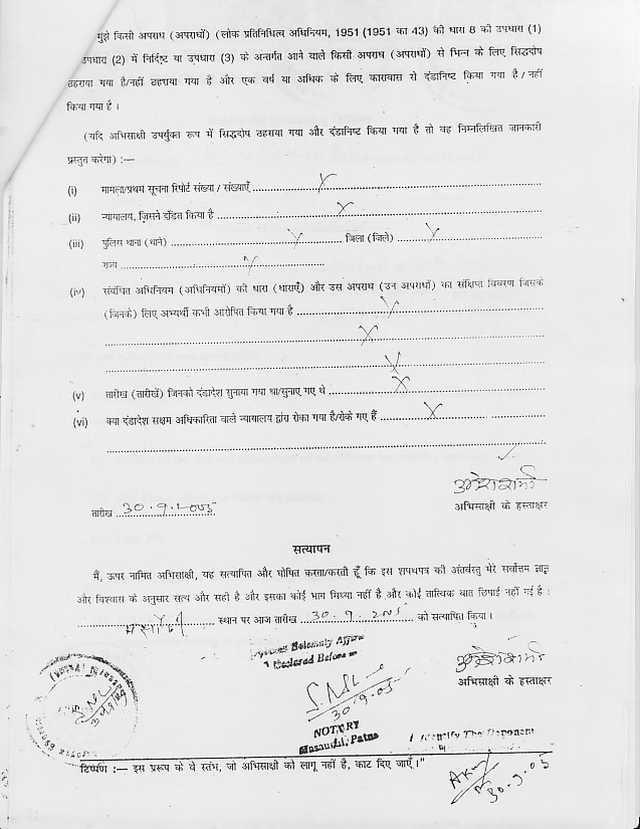 मुझे किसी अपराध (अपराधों) (लोक प्रतिनिधित्व अधिनियम, 1951 (1951 का 43) की धारा 8 की उपधारा (1)
उपधारा (2) में निर्दिष्ट या उपधारा (3) के अन्तर्गत आने वाले किसी अपराध (अपराधों) से भिन्न के लिए सिद्धदोष
ठहराया गया है/नहीं ठहराया गया है और एक वर्ष या अधिक के लिए कारावास से दंडानिष्ट किया गया है / नहीं
किया गया है ।
(यदि अभिसाक्षी उपर्युक्त रूप में सिद्धदोष ठहराया गया और दंडानिष्ट किया गया है तो वह निम्नलिखित जानकारी
प्रस्तुत करेगा) :—
(i) मामला/प्रथम सूचना रिपोर्ट संख्या / संख्याएँ ........ X ........
(ii) न्यायालय, जिसने दंडित किया है ........ X ........
(iii) पुलिस थाना (थाने) ........ X ........ जिला (जिले) ........ X ........
राज्य ........ X ........
(iv) संबंधित अधिनियम (अधिनियमों) की धारा (धाराएँ) और उस अपराध (उन अपराधों) का संक्षिप्त विवरण जिसके
(जिनके) लिए अभ्यर्थी कभी आरोपित किया गया है ........ X ........
........ X ........
........ X ........
(v) तारीख (तारीखें) जिनको दंडादेश सुनाया गया था/सुनाए गए थे ........ X ........
(vi) क्या दंडादेश सक्षम अधिकारिता वाले न्यायालय द्वारा रोका गया है/रोके गए हैं ........ X ........
तारीख 30.9.2005
अभिसाक्षी के हस्ताक्षर
सत्यापन
मैं, ऊपर नामित अभिसाक्षी, यह सत्यापित और घोषित करता/करती हूँ कि इस शपथपत्र की अंतर्वस्तु मेरे सर्वोत्तम ज्ञान
और विश्वास के अनुसार सत्य और सही है और इसका कोई भाग मिथ्या नहीं है और कोई तात्विक बात छिपाई नहीं गई है :
स्थान पर आज तारीख 30.9.2005 को सत्यापित किया ।
Solemnly Affirm
Declared Before
30.9.05
NOTARY
Masaudhi, Patna
अभिसाक्षी के हस्ताक्षर
I Identify The Deponent
30.9.05
टिप्पण :— इस प्ररूप के वे स्तंभ, जो अभिसाक्षी को लागू नहीं है, काट दिए जाएँ ।"